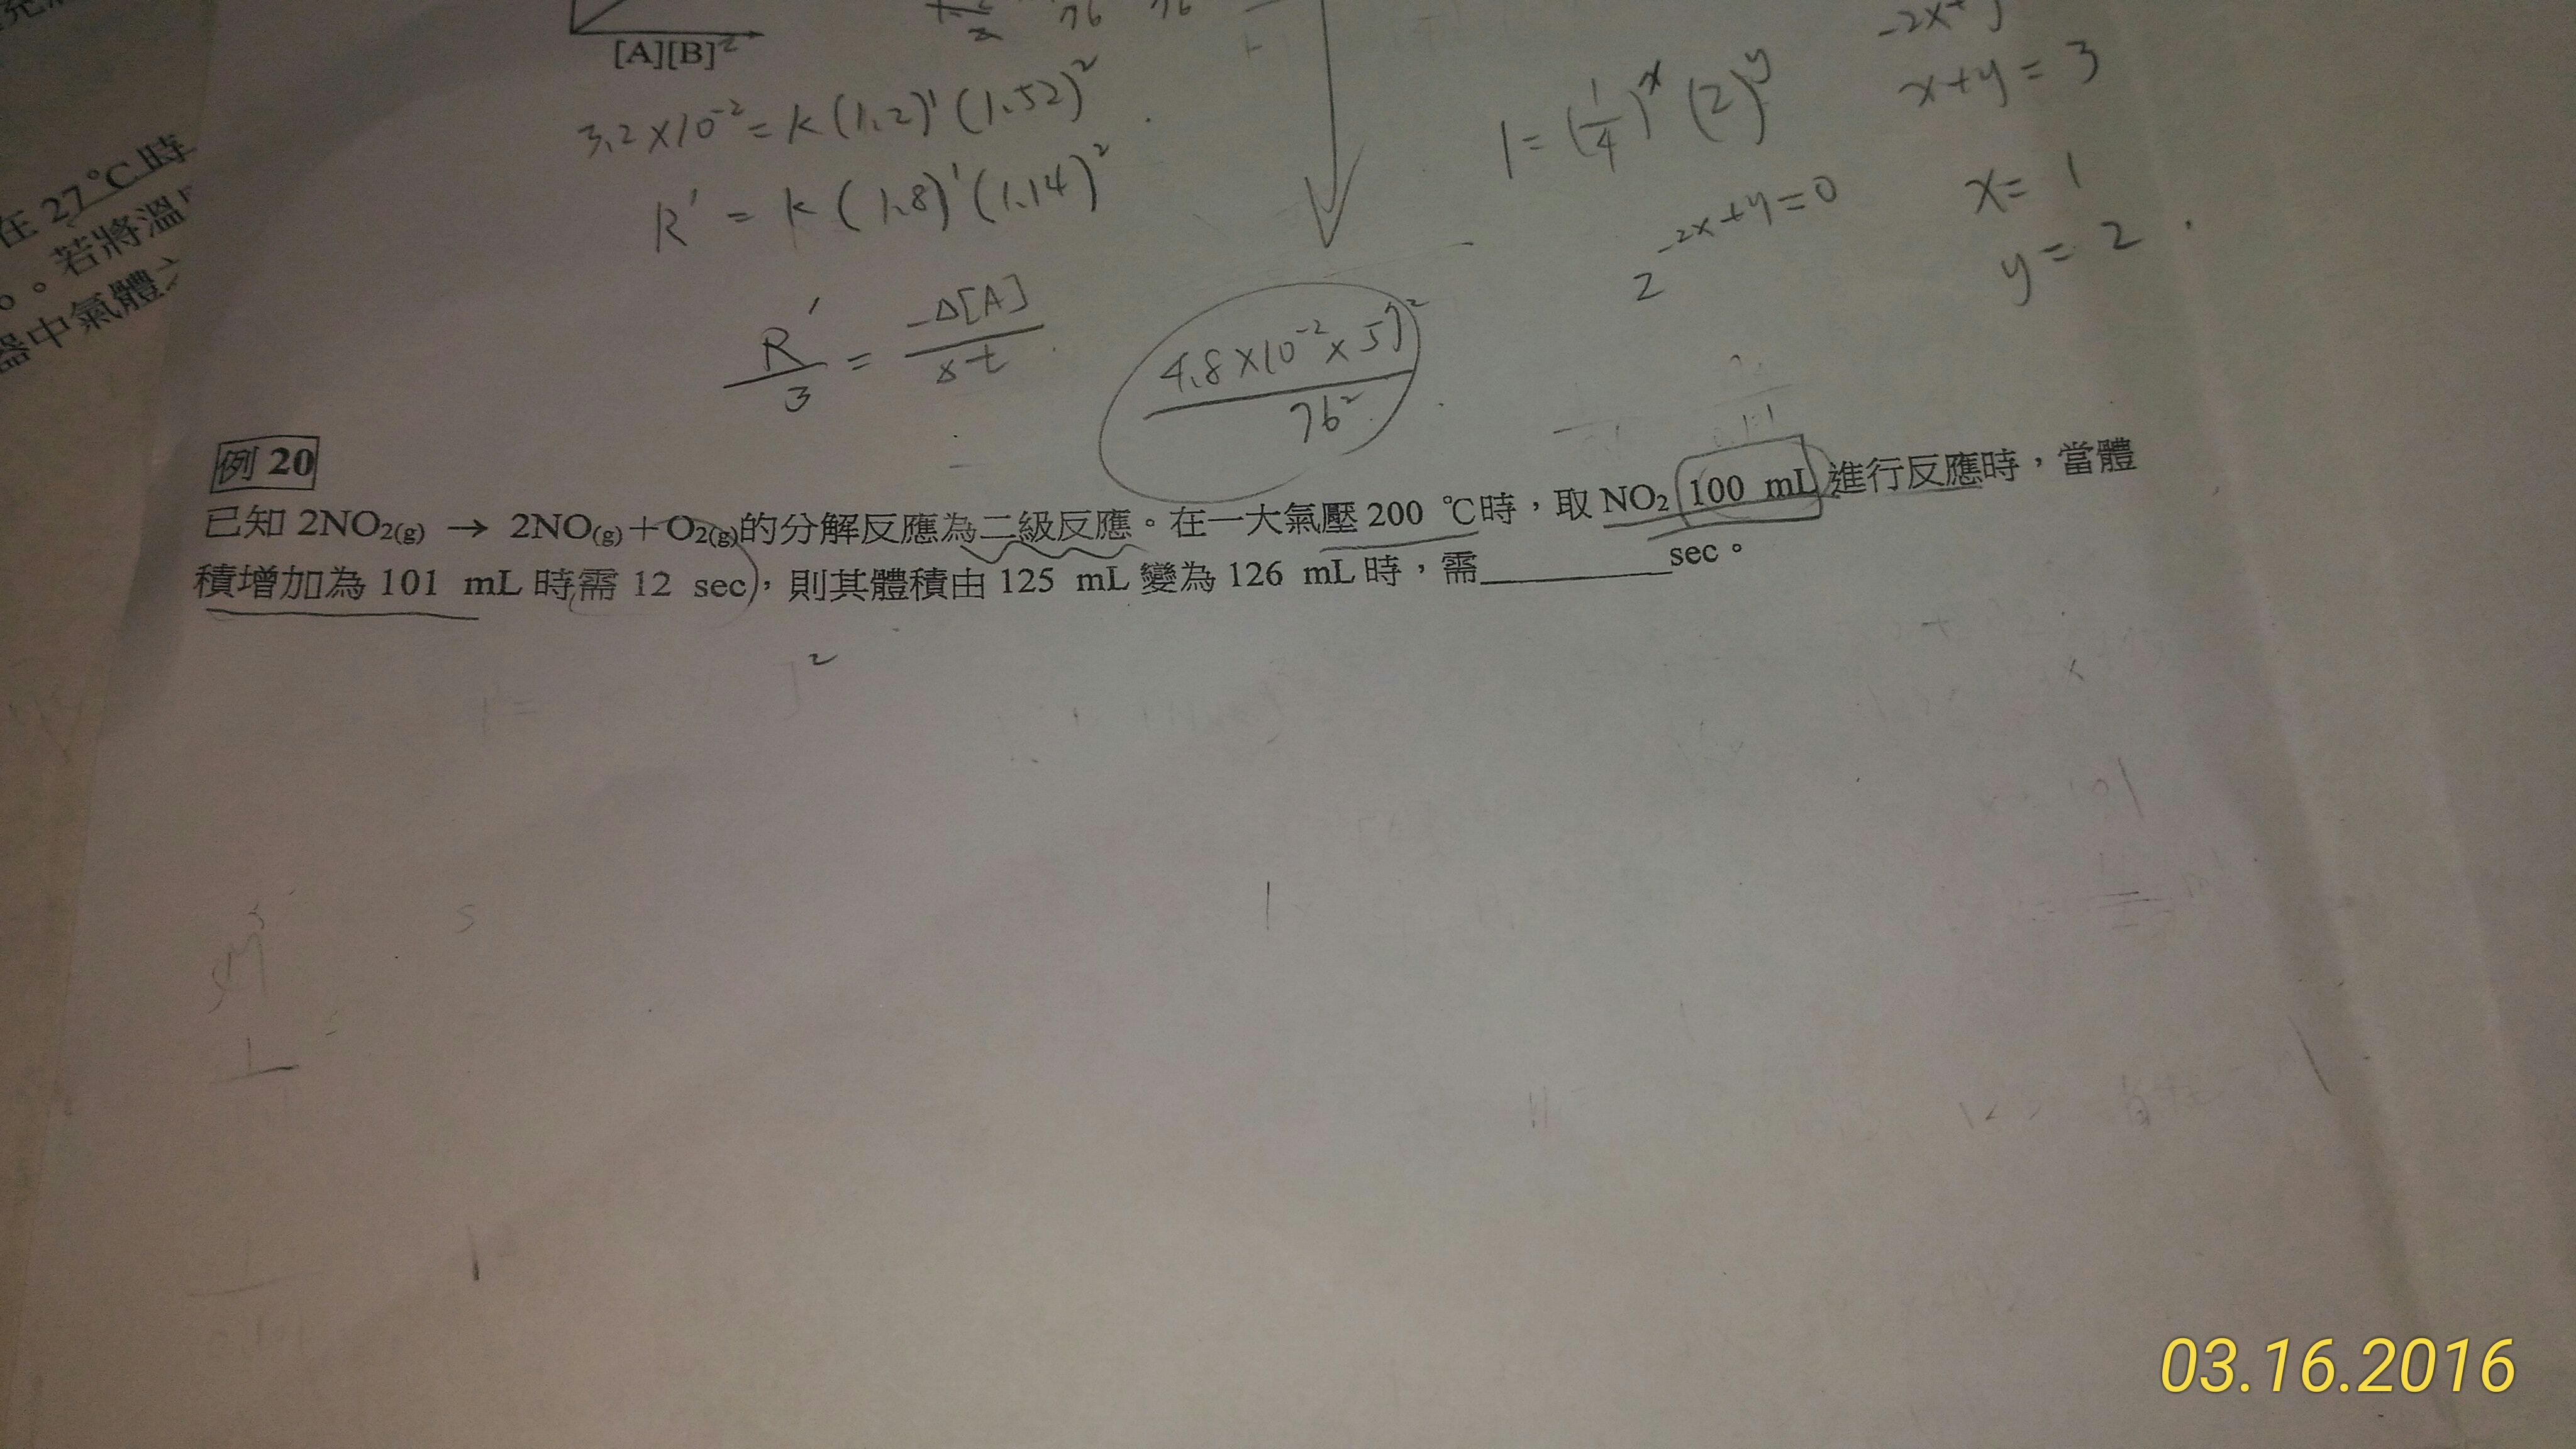 [A][B]²
3.2×10⁻²= k(1.2)¹(1.52)²
R' = k(1.8)¹(1.14)²
R'/3 = -Δ[A]/Δt
4.8×10⁻²×57²/76²
1=(1/4)ˣ(2)ʸ
2^-2x+y=0
x+y=3
x=1
y=2
在27℃時
。若將溫
器中氣體之
例 20
已知 2NO₂(g) → 2NO(g)+O₂(g)的分解反應為二級反應。在一大氣壓 200 ℃時，取 NO₂ 100 mL 進行反應時，當體
積增加為 101 mL 時需 12 sec，則其體積由 125 mL 變為 126 mL 時，需__________sec。
03.16.2016